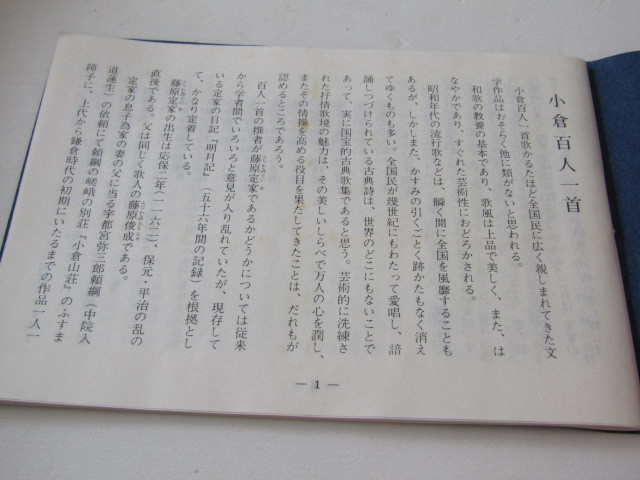 小倉百人一首
小倉百人一首歌かるたほど全国民に広く親しまれてきた文
学作品はおそらく他に類がないと思われる。
和歌の教養の基本であり、歌風は上品で美しく、また、は
なやかであり、すぐれた芸術性におどろかされる。
昭和年代の流行歌などは、瞬く間に全国を風靡することも
あるが、しかしまた、かすみの引くごとく跡かたもなく消え
てゆくものも多い。全国民が幾世紀にもわたって愛唱し、諳
誦しつづけられている古典詩は、世界のどこにもないことで
あって、実に国宝的古典歌集であると思う。芸術的に洗練さ
れた抒情歌境の魅力は、その美しいしらべで万人の心を潤し、
またその情操を高める役目を果たしてきたことは、だれもが
認めるところであろう。
百人一首の撰者が藤原定家であるかどうかについては従来
から学者間でいろいろと意見が入り乱れていたが、現存して
いる定家の日記『明月記』(五十六年間の記録)を根拠とし
て、かなり定着している。
藤原定家の出生は応保二年(一一六二)、保元・平治の乱の
直後である。父は同じく歌人の藤原俊成である。
定家の息子為家の妻の父に当る宇都宮弥三郎頼綱(中院入
道蓮生)の依頼にて頼綱の嵯峨の別荘『小倉山荘』のふすま
障子に、上代から鎌倉時代の初期にいたるまでの作品一人一
— 1 —